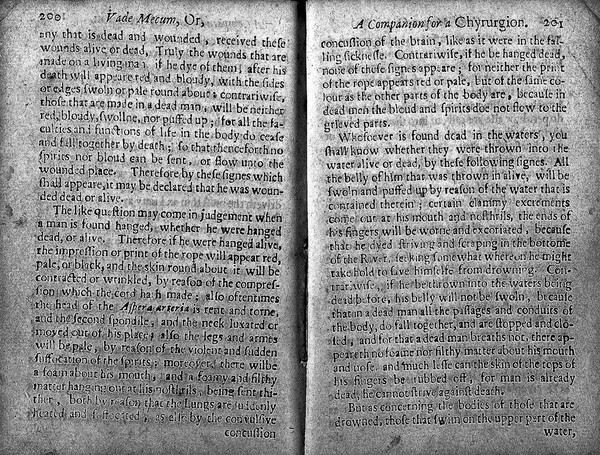 200 Vade Mecum, Or,
any that is dead and wounded, received these
wounds alive or dead, Truly the wounds that are
made on a living man, if he dye of them, after his
death will appeare red and bloudy, with the sides
or edges swoln or pale round about: contrariwise,
those that are made in a dead man, will be neither
red, bloudy, swollne, nor puffed up; for all the fa-
culties and functions of life in the body do cease
and fall together by death; so that thenceforth no
spirits nor bloud can be sent, or flow unto the
wounded place. Therefore by these signes which
shall appeare, it may be declared that he was woun-
ded dead or alive.
The like question may come in judgement when
a man is found hanged, whether he were hanged
dead, or alive. Therefore if he were hanged alive,
the impression or print of the rope will appear red,
pale, or black, and the skin round about it will be
contracted or wrinkled, by reason of the compres-
sion which the cord hath made; also oftentimes
the head of the Aspera arteria is rent and torne,
and the second spondile, and the neck luxated or
moved out of his place; also the legs and armes
will be pale, by reason of the violent and sudden
suffocation of the spirits; moreover there will be
a foam about his mouth, and a foamy and filthy
matter hanging out at his nosthrils, being sent thi-
ther, both by reason that the Lungs are suddenly
heated and suffocated, as also by the convulsive
concussion
A Companion for a Chyrurgion. 201
concussion of the brain, like as it were in the fal-
ling sicknesse. Contrariwise, if he be hanged dead,
none of these signes appeare; for neither the print
of the rope appears red or pale, but of the same co-
lour as the other parts of the body are, because in
dead men the bloud and spirits doe not flow to the
grieved parts.
Whosoever is found dead in the waters, you
shall know whether they were thrown into the
water alive or dead, by these following signes. All
the belly of him that was thrown in alive, will be
swoln and puffed up by reason of the water that is
contained therein; certain clammy excrements
come out at his mouth and nosthrils, the ends of
his fingers will be worne and excoriated, because
that he dyed striving and scraping in the bottome
of the River, seeking somewhat whereon he might
take hold to save himselfe from drowning. Con-
trariwise, if he be thrown into the waters being
dead before, his belly will not be swoln, because
that in a dead man all the passages and conduits of
the body, do fall together, and are stopped and clo-
sed, and for that a dead man breaths not, there ap-
peareth no foame nor filthy matter about his mouth
and nose, and much lesse can the skin of the tops of
his fingers be rubbed off, for man is already
dead, he cannot strive against death.
But as concerning the bodies of those that are
drowned, those that swim on the upper part of the
water,